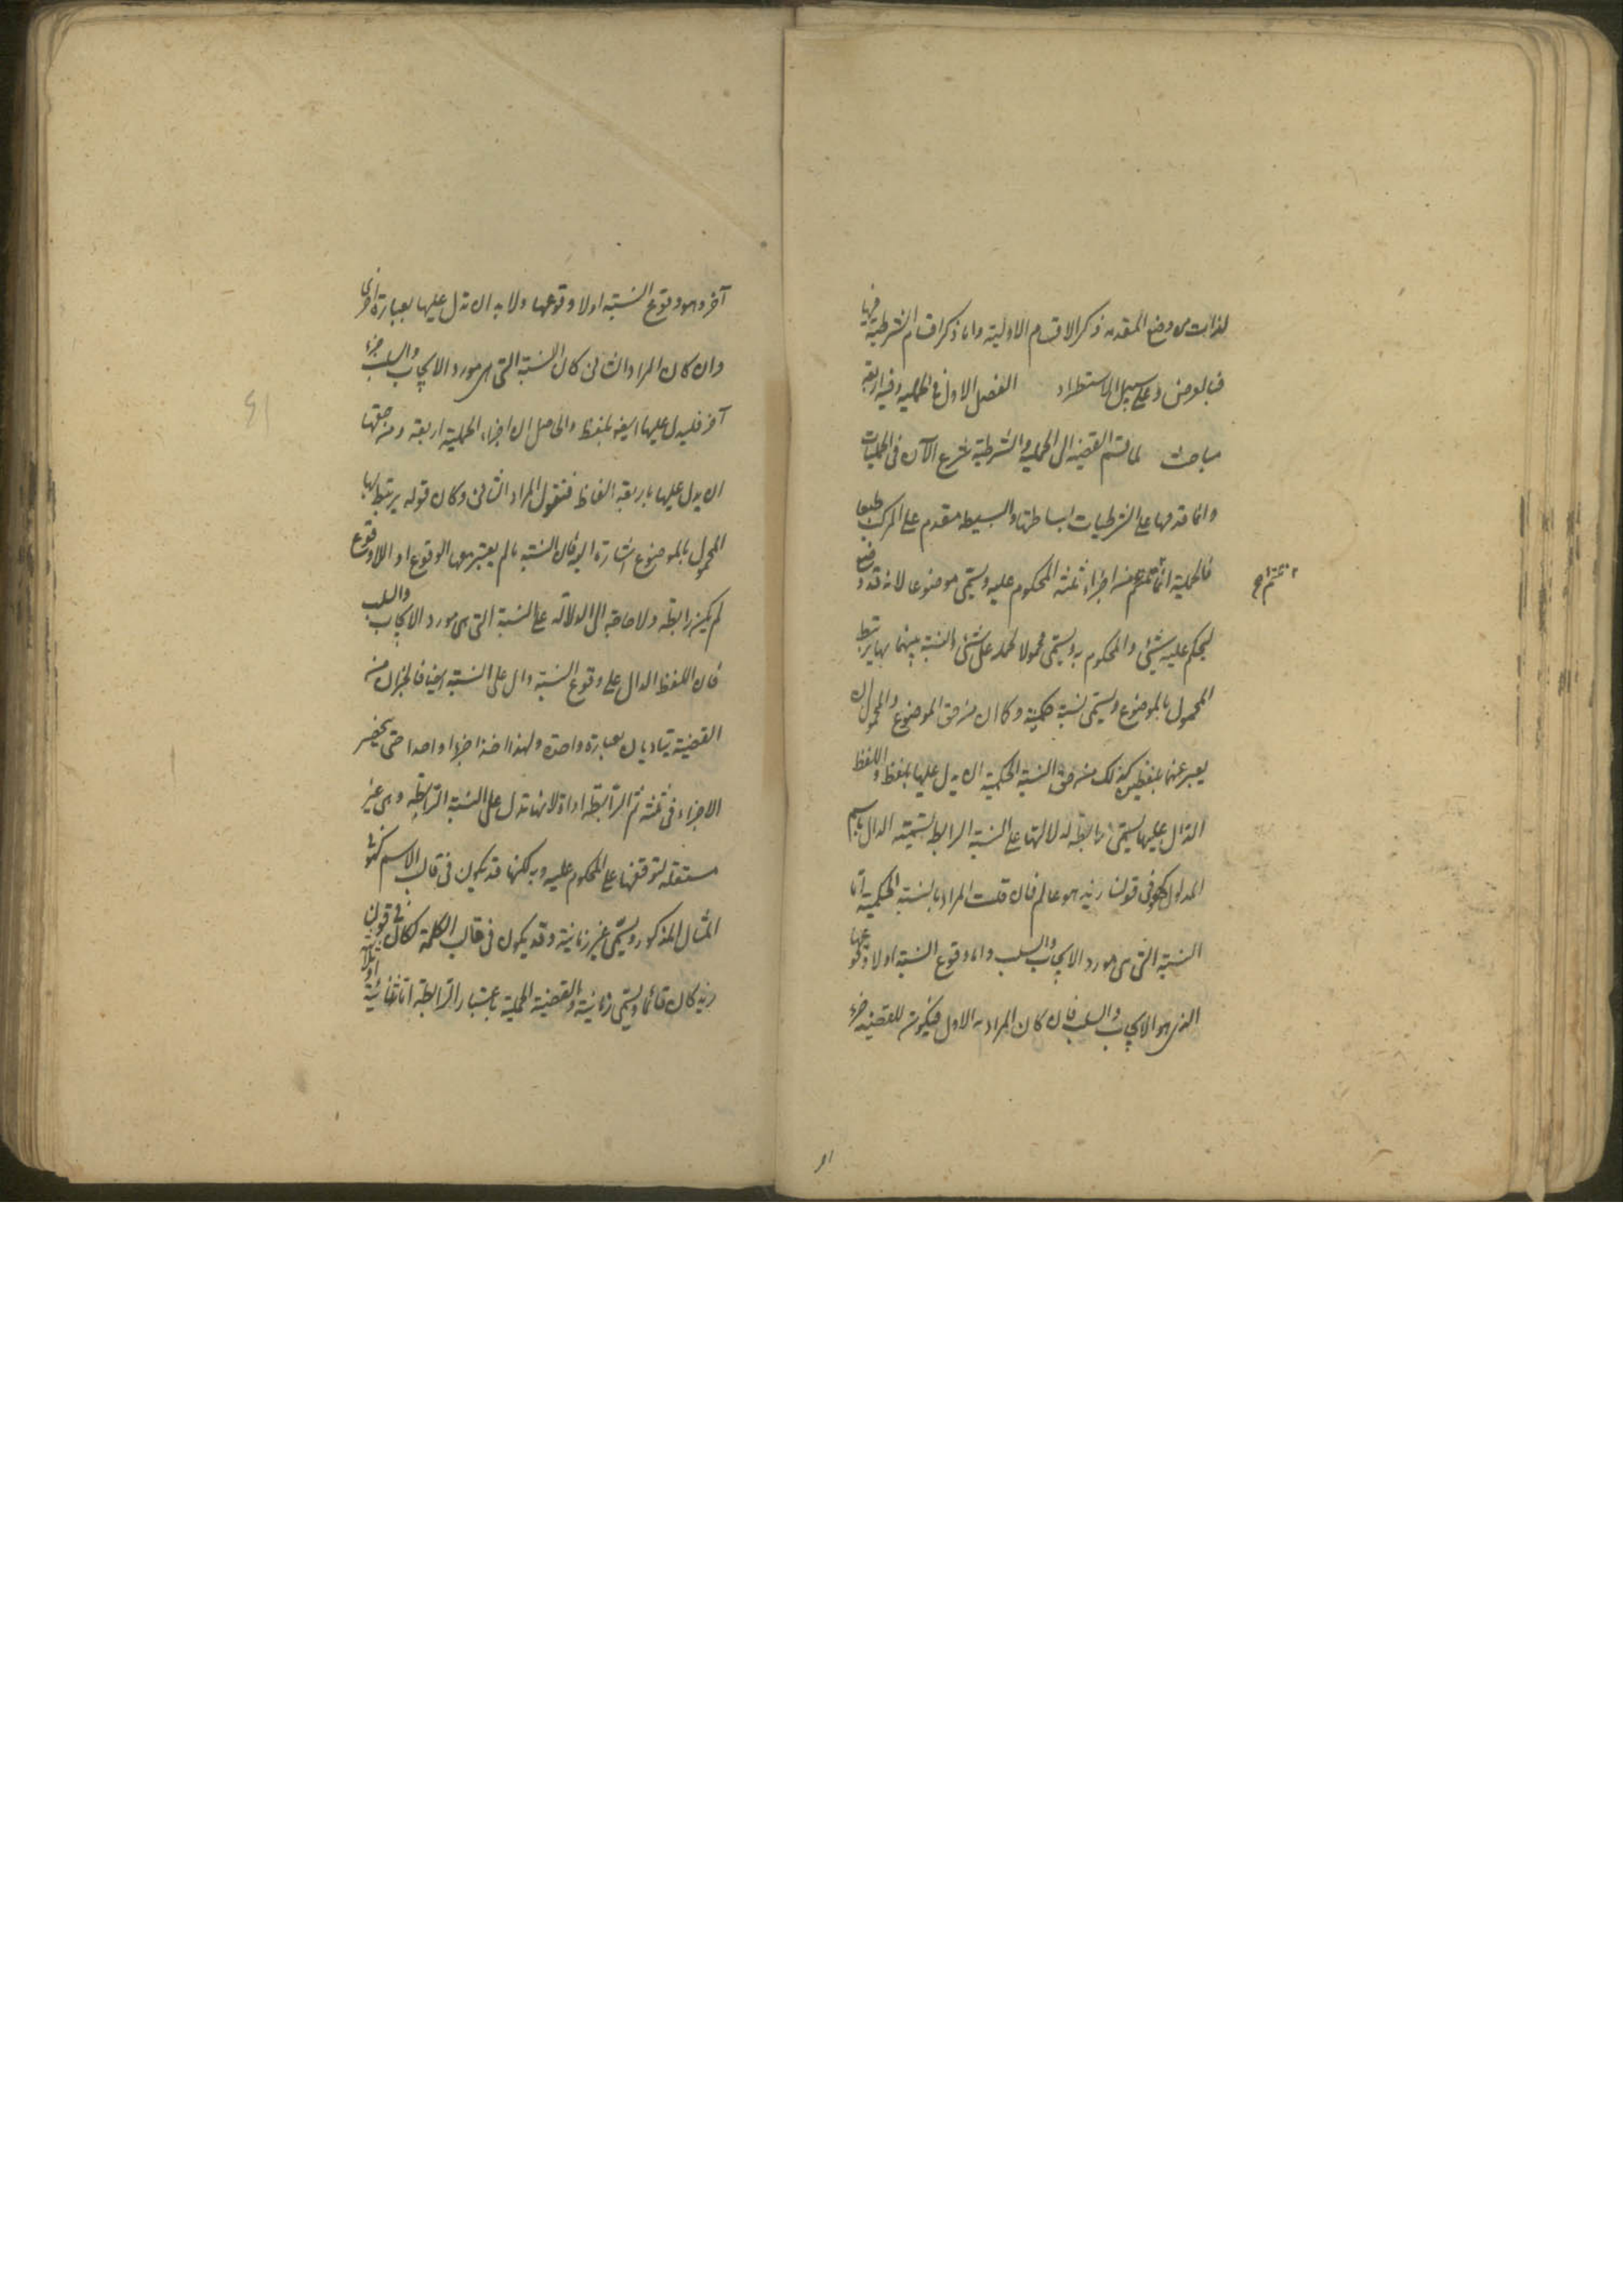 لذات من وضع المقدمه ذكر الاقسام الاولية واما ذكر اقسام الشرطية فيها
فبالعرض وعلى سبيل الاستطراد الفصل الاول في الحمليه وفيه اربعة
مباحث لما قسم القضيه الى الحملية والشرطية شرع الآن في الحمليات
وانما قدمها على الشرطيات لبساطتها والبسيط مقدم على المركب طبعا
فالحملية انما تلتئم من اجزاء ثلثة المحكوم عليه ويسمى موضوعا لانه قد وضع
ليحكم عليه بشئ والمحكوم به ويسمى محمولا لحمله على شئ والنسبة بينهما بها يرتبط
المحمول بالموضوع ويسمى نسبة حكمية وكما ان من حق الموضوع والمحمول ان
يعبر عنهما بلفظين كذلك من حق النسبة الحكمية ان يدل عليها بلفظ واللفظ
الدال عليها يسمى رابطة لدلالتها على النسبة الرابطة تسمية الدال باسم
المدلول كهو في قولنا زيد هو عالم فان قلت المراد بالنسبة الحكمية اما
النسبة التي هي مورد الايجاب والسلب واما وقوع النسبة او لا وقوعها
الذي هو الايجاب والسلب فان كان المراد به الاول فيكون للقضيه جزء
آخر وهو وقوع النسبة او لا وقوعها ولا بد ان تدل عليها بعبارة اخرى
وان كان المراد الثاني كان النسبة التي هي مورد الايجاب والسلب جزء
آخر فليدل عليها ايضا بلفظ والحاصل ان اجزاء الحملية اربعة ومن حقها
ان يدل عليها باربعة الفاظ فنقول المراد الثاني وكان قوله يرتبط بها
المحمول بالموضوع اشارة اليه فان النسبة ما لم يعتبر معها الوقوع او اللاوقوع
لم يكن رابطة ولا حاجة الى الدلالة على النسبة التي هي مورد الايجاب والسلب
فان اللفظ الدال على وقوع النسبة دال على النسبة ايضا فالجزان من
القضية يتاديان بعبارة واحدة ولهذا اخذا جزءا واحدا حتى يحصر
الاجزاء في ثلثة ثم الرابطة اداة لانها تدل على النسبة الرابطة وهي غير
مستقلة لتوقفها على المحكوم عليه وبه لكنها قد يكون في قالب الاسم كهو في
المثال المذكور ويسمى غير زمانية وقد يكون في قالب الكلمة ككان في قولنا
زيد كان قائما ويسمى زمانية والقضية الحملية باعتبار الرابطة اما ثنائية او ثلاثية